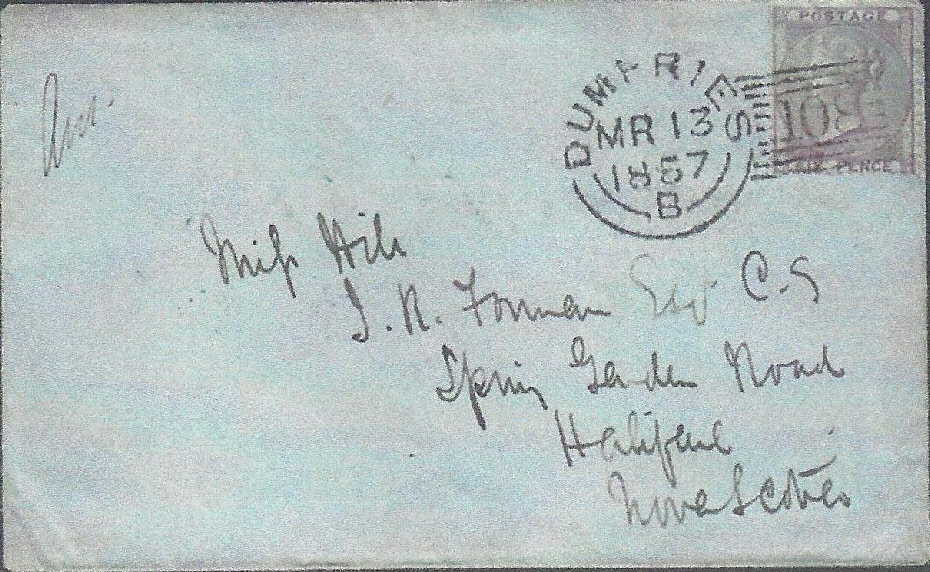 POSTAGE
DUMFRIES
MR 13
1857
B
108
SIX PENCE
Miss Hill
J. R. Forman Esq C.E
Spring Garden Road
Halifax
Nova Scotia